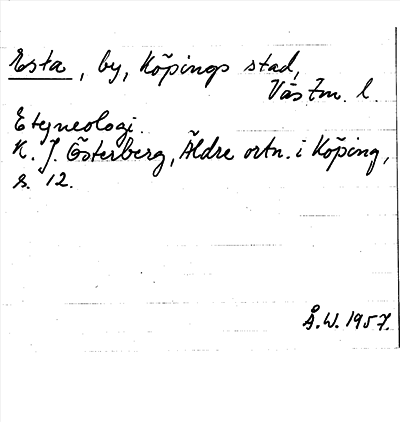 Esta, by, Köpings stad,
Västm. l.
Etymologi.
K. J. Österberg, Äldre ortn. i Köping,
s. 12.
Å.W. 1957.